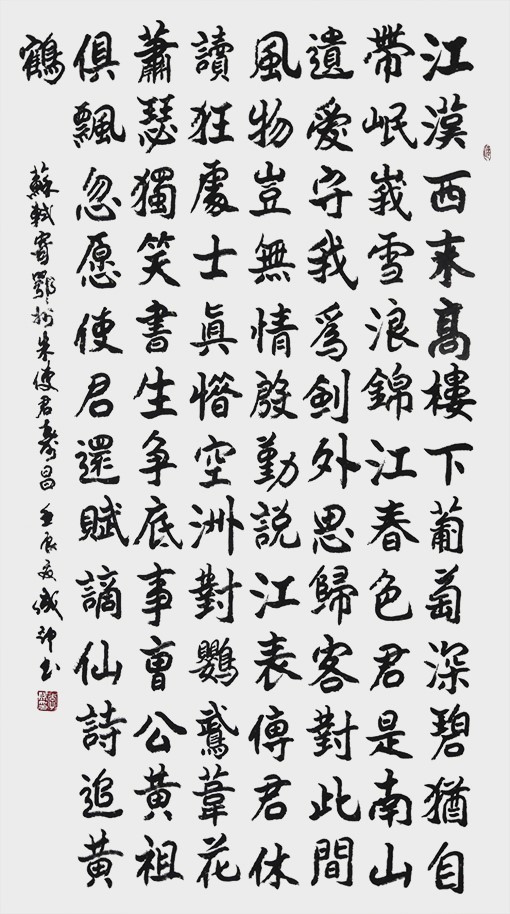 江漢西来高樓下葡萄深碧猶自
帶岷峩雪浪錦江春色君是南山
遺愛守我爲劍外思歸客對此間
風物豈無情殷勤說江表傳君休
讀狂處士真惜空洲對鸚鵡葦花
蕭瑟獨笑書生争底事曹公黄祖
俱飄忽愿使君還賦謫仙詩追黄
鶴
蘇軾寄鄂州朱使君壽昌 壬辰夏 書